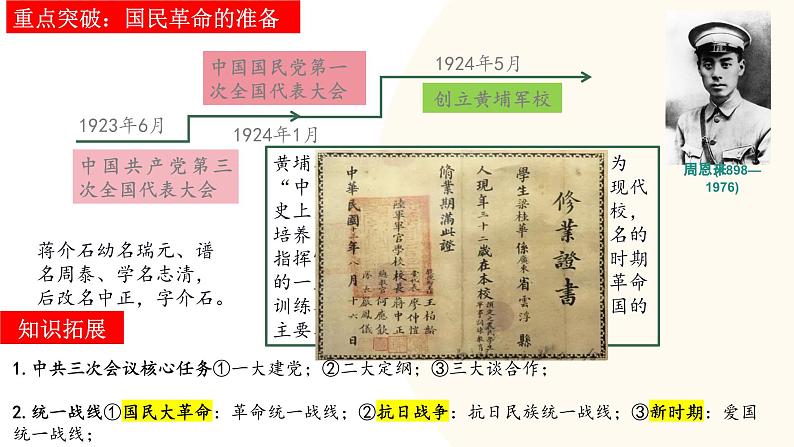 重点突破：国民革命的准备
中国国民党第一
次全国代表大会
1924年5月
创立黄埔军校
1923年6月
1924年1月
中国共产党第三
次全国代表大会
周恩来(1898—
1976)
黄埔
为
“中
现代
史上
校，
培养
名的
指挥
时期
的一
革命
训练
国的
主要
修業證書
學生梁桂華係廣東省雲浮縣
人現年三十二歲在本校
修業期滿此證
陸軍軍官學校校長蔣中正
中華民國十三年八月十六日
蒋介石幼名瑞元、谱
名周泰、学名志清，
后改名中正，字介石。
知识拓展
1.中共三次会议核心任务①一大建党；②二大定纲；③三大谈合作；
2.统一战线①国民大革命：革命统一战线；②抗日战争：抗日民族统一战线；③新时期：爱国
统一战线；